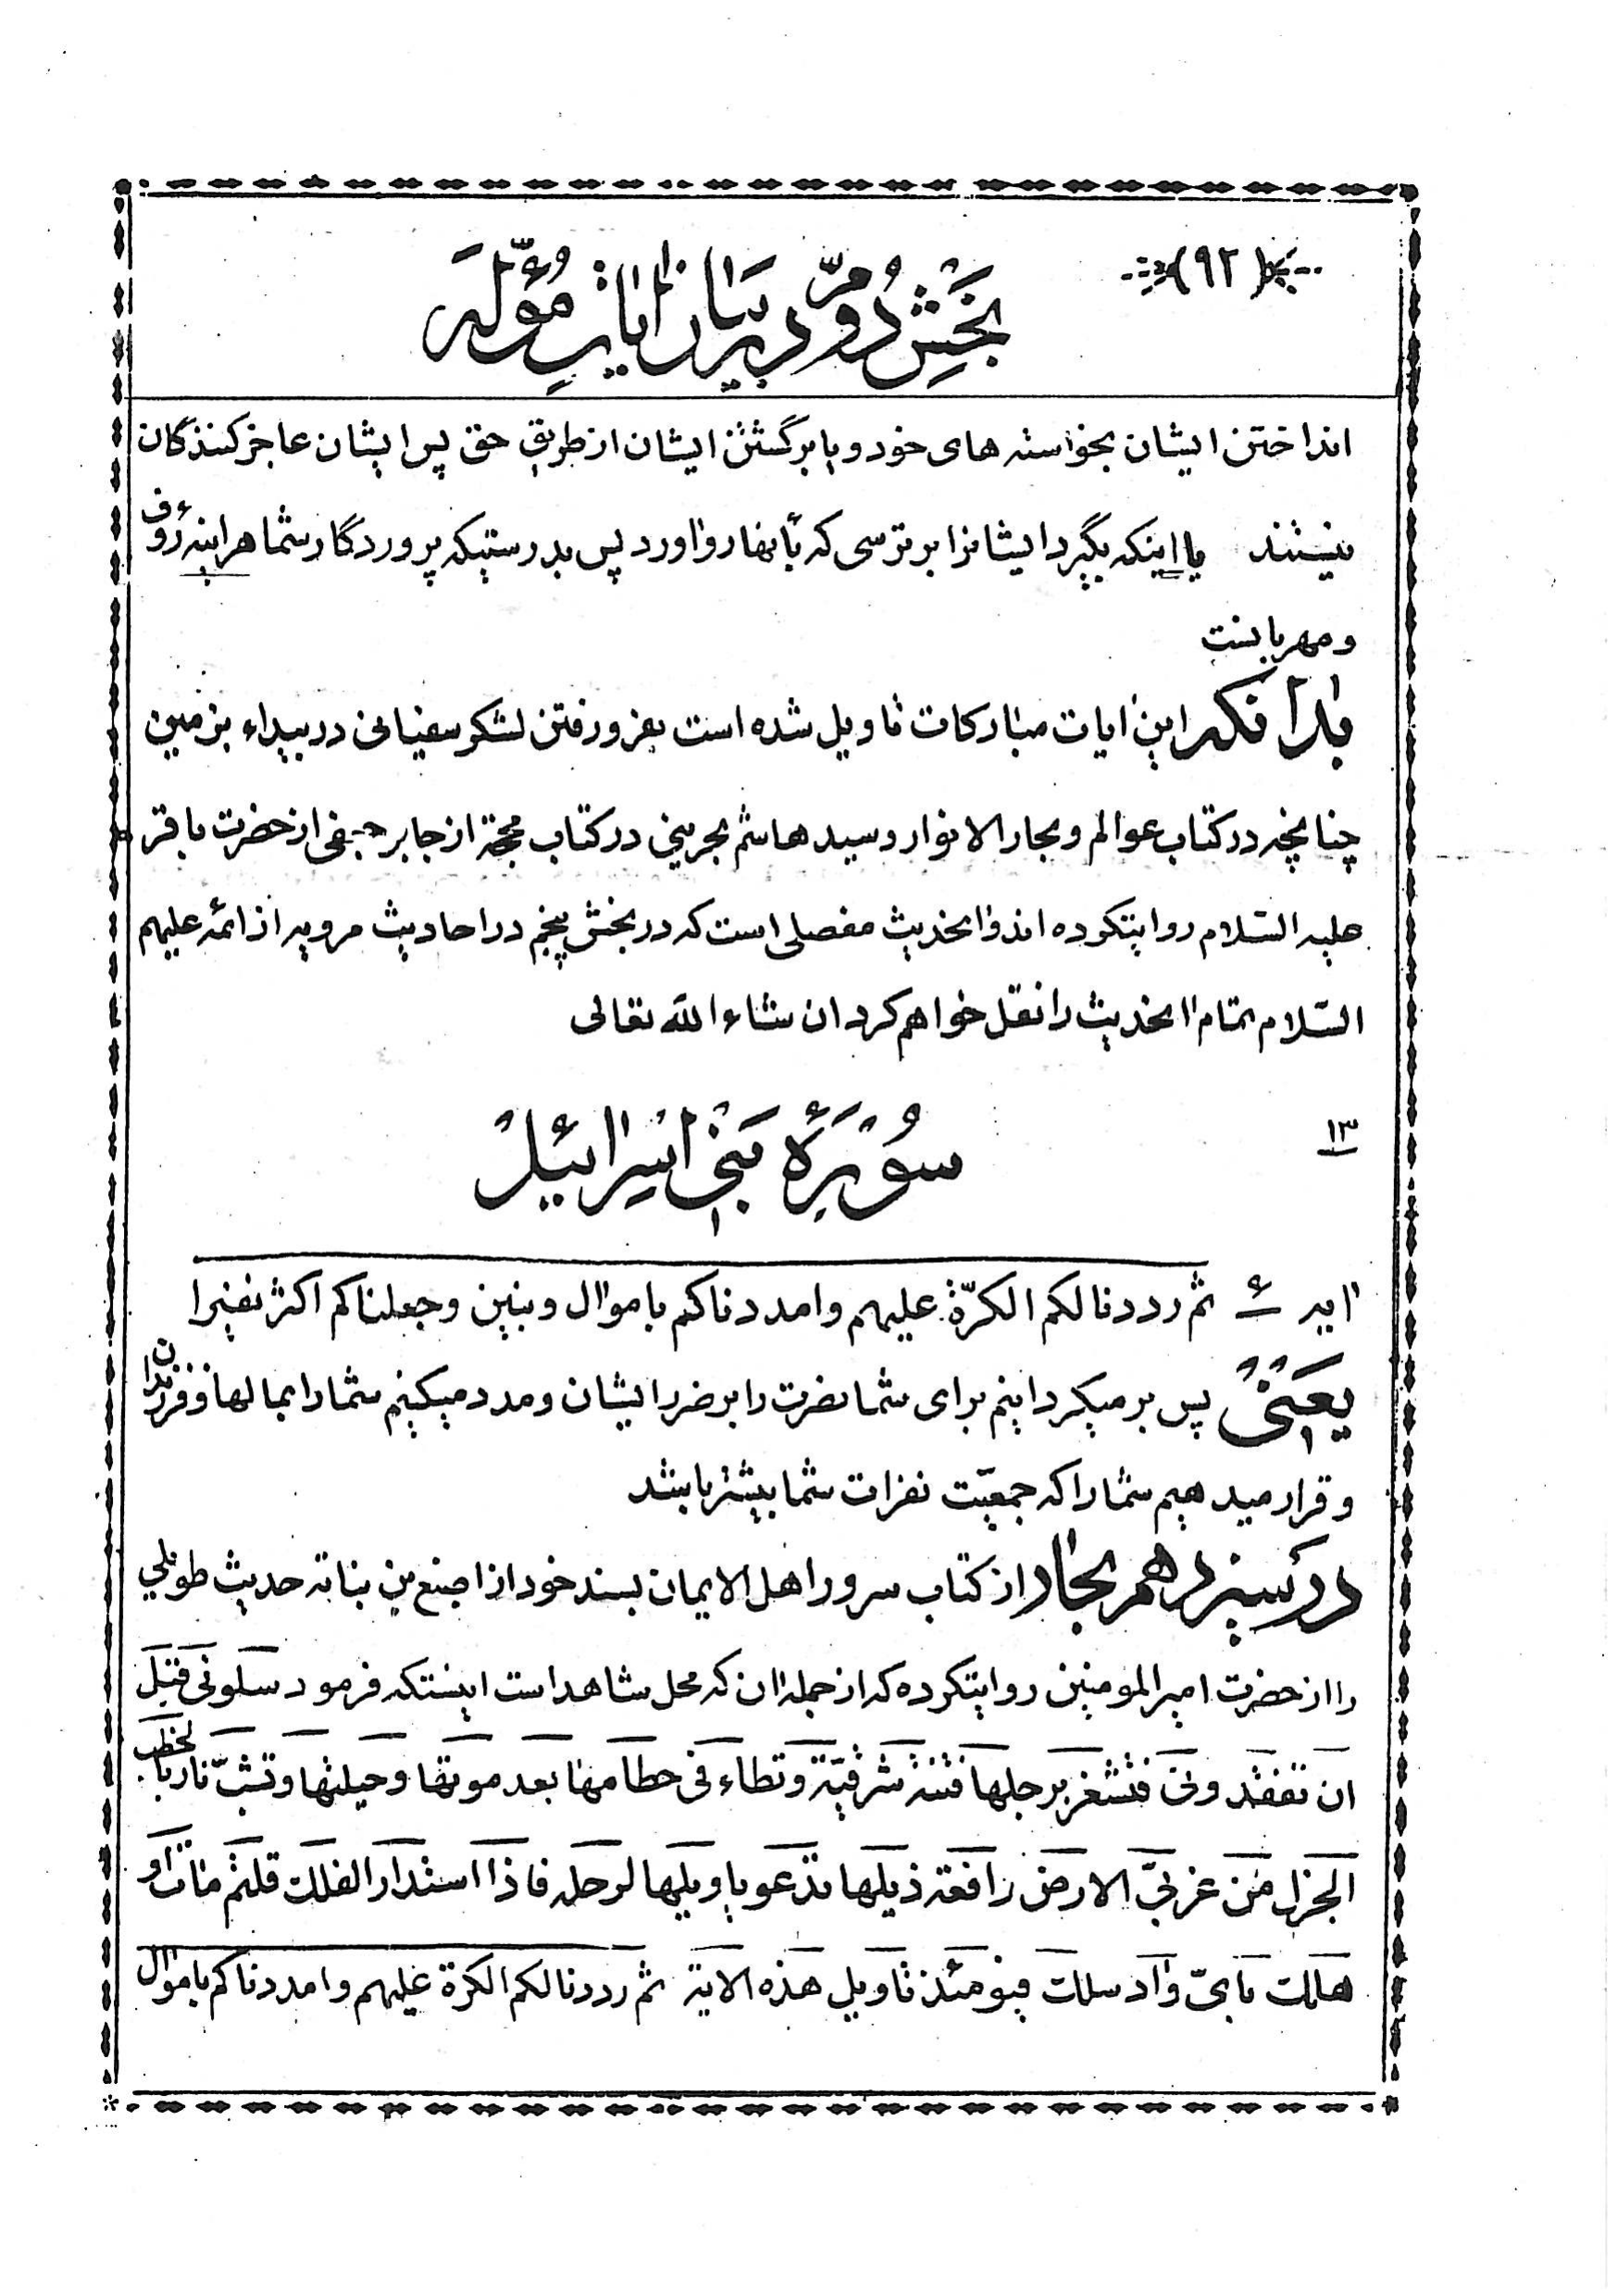 (۹۲)
بخش دوّم در بیان ایات مؤلّه
انداختن ایشان بخواسته های خود و یا برگشتن ایشان از طریق حق پس ایشان عاجز کنندگان
نیستند یا اینکه بگیرد ایشانرا بر ترسی که بآنها رو اورد پس بدرستیکه پروردگار شما هراینه رؤف
و مهربانست
بدانکه این ایات مبارکات تاویل شده است بفرو رفتن لشکر سفیانی در بیداء بزمین
چنانچه در کتاب عوالم و بحار الانوار و سید هاشم بحرینی در کتاب محجة از جابر جعفی از حضرت باقر
علیه السّلام روایتکرده اند و انحدیث مفصلی است که در بخش پنجم در احادیث مرویه از ائمه علیهم
السّلام تمام انحدیث را نقل خواهم کرد ان شاء اللّه تعالی
۱۳
سُورَه بَنی اسرائیل
ایه ۶ ثم رددنا لکم الکرّة علیهم و امددناکم باموال و بنین و جعلناکم اکثر نفیرا
یَعنی پس بر میگردانیم برای شما نصرت را بر ضرر ایشان و مدد میکنیم شما را بمالها و فرزندان
و قرار میدهیم شما را که جمعیّت نفرات شما بیشتر باشد
در سیزدهم بحار از کتاب سرور اهل الایمان بسند خود از اصبغ بن بناتة حدیث طویلی
را از حضرت امیر المومنین روایتکرده که از جمله ان که محل شاهد است اینستکه فرمود سلونی قبل
ان تفقدونی فتشغر برجلها فتنة شرقیّة و تطاء فی حطامها بعد موتها و حیلتها و تشبّ نار بالحطب
الجزل من غربیّ الارض رافعة ذیلها تدعو یا ویلها لرحله فاذا استدار الفلک قلتم مات او
هلک بایّ واد سلک فیومئذ تاویل هذه الایة ثم رددنا لکم الکرة علیهم و امددناکم باموال